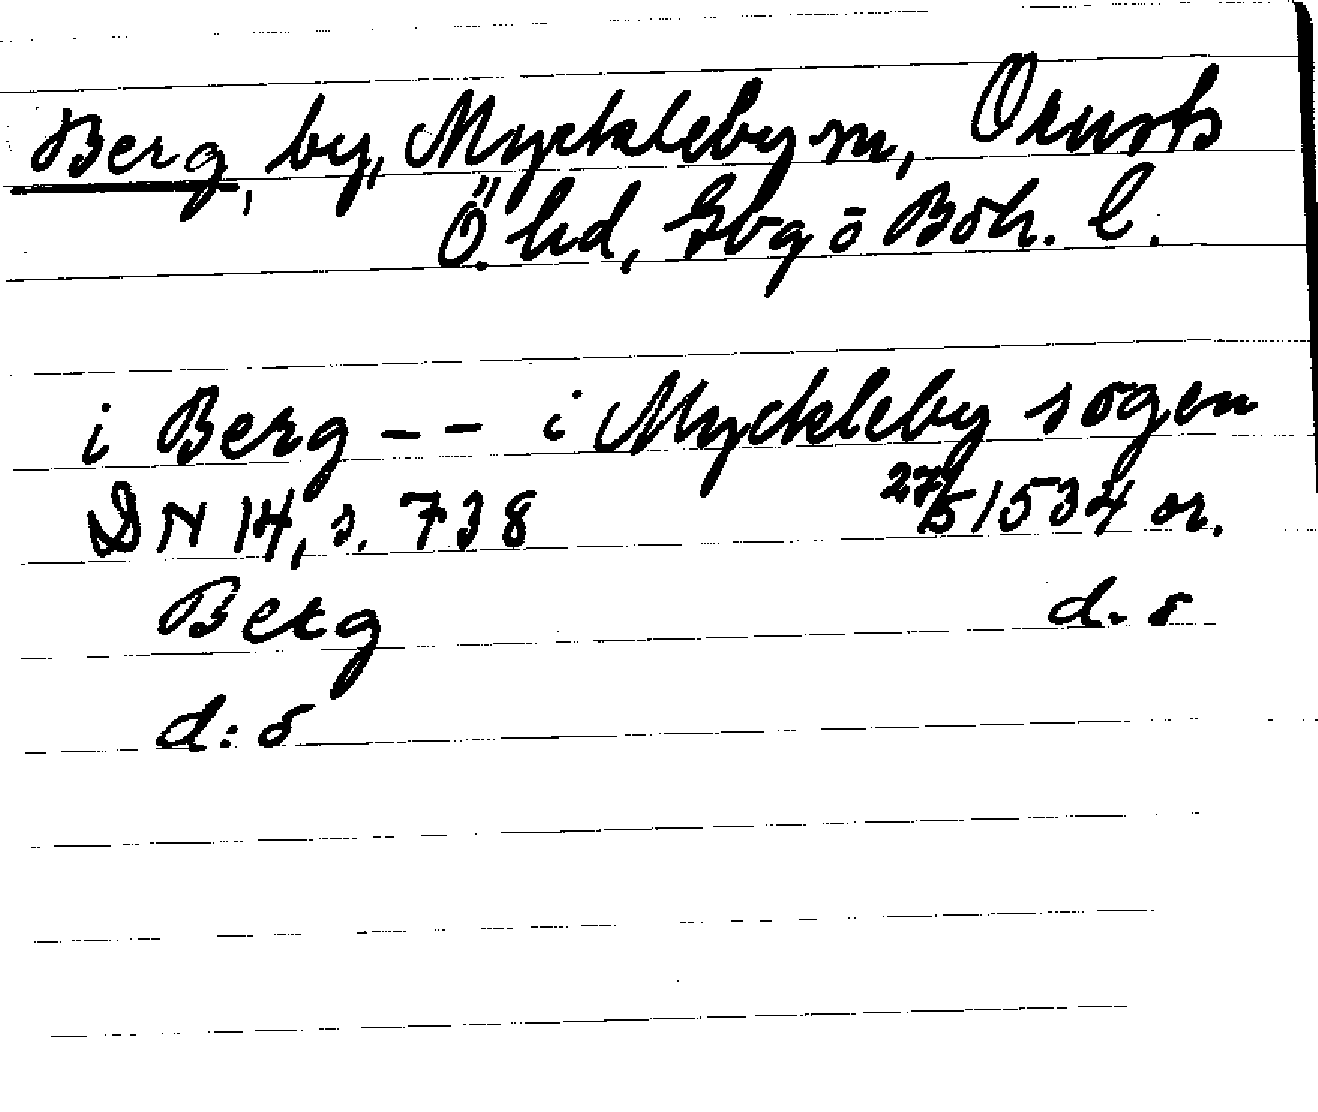 Berg, by, Myckleby sn, Orusts
Ö. hd, Gbg o Boh. l.
i Berg -- i Myckleby sogen
DN 14, s. 738 27/5 1534 or.
Berg d:o
d:o